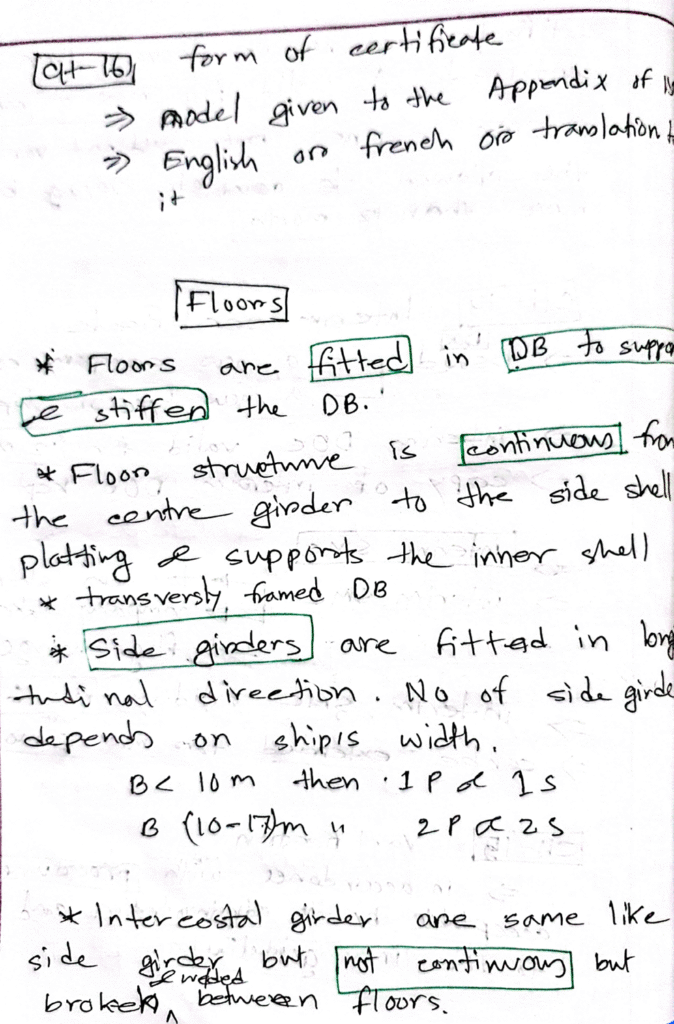 form of certificate
⇒ model given to the Appendix of
⇒ English or french or translation
it
Floors
* Floors are fitted in DB to suppo
& stiffen the DB.
* Floor structure is continuous from
the centre girder to the side shell
platting & supports the inner shell
* transversly framed DB
* Side girders are fitted in long
tudinal direction. No of side girde
depends on ship's width.
B < 10 m then 1 P & 1 S
B (10-17)m " 2 P & 2 S
* Intercostal girder are same like
side girder but not continuous but
broken & welded between floors.